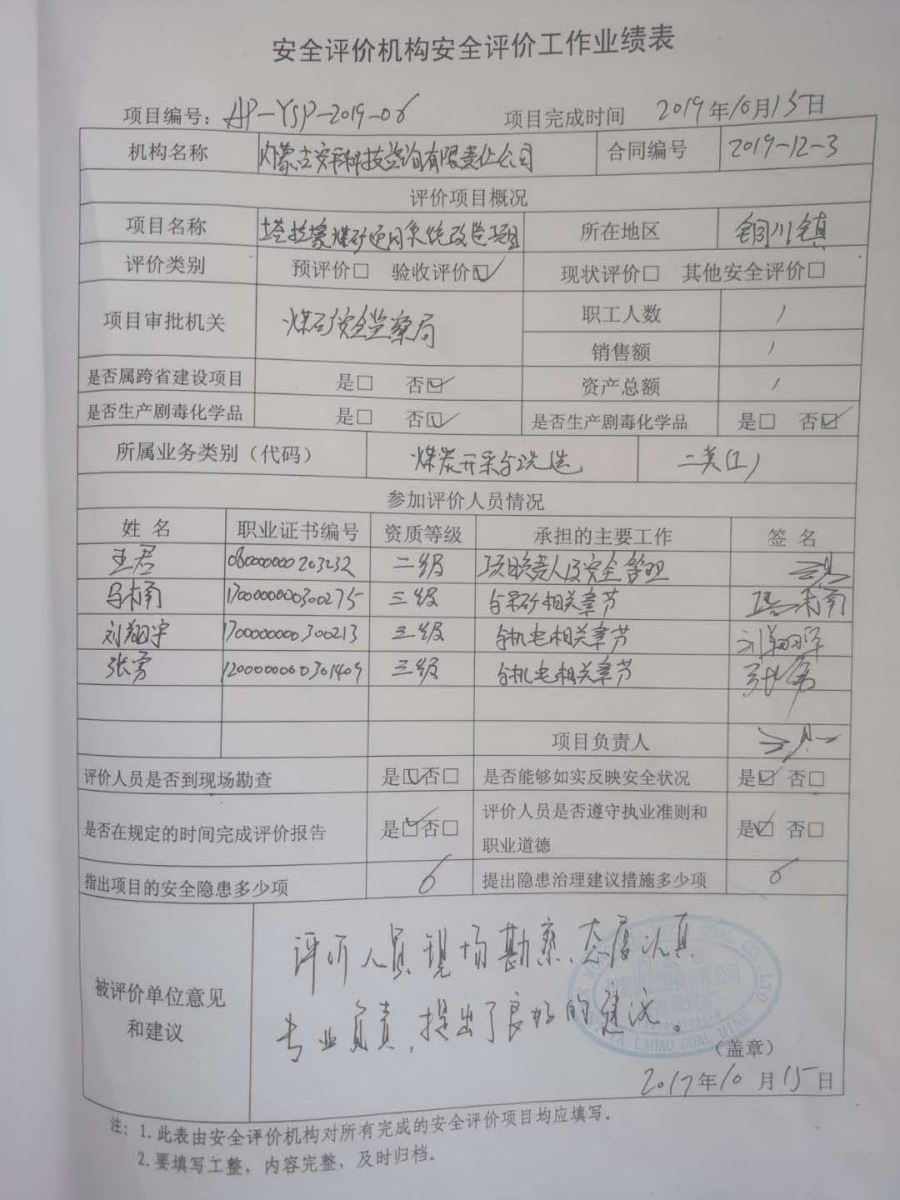 安全评价机构安全评价工作业绩表
项目编号：AP-YSP-2019-06 项目完成时间 2019年10月15日
机构名称 内蒙古安科科技咨询有限责任公司 合同编号 2019-12-3
评价项目概况
项目名称 塔拉壕煤矿通风系统改造项目 所在地区 铜川镇
评价类别 预评价□ 验收评价☑ 现状评价□ 其他安全评价□
项目审批机关 煤矿安全监察局 职工人数 /
销售额 /
是否属跨省建设项目 是□ 否☑ 资产总额 /
是否生产剧毒化学品 是□ 否☑ 是否生产剧毒化学品 是□ 否☑
所属业务类别（代码） 煤炭开采与洗选 二类(1)
参加评价人员情况
姓 名 职业证书编号 资质等级 承担的主要工作 签 名
王君 0800000000203232 二级 项目负责人及安全管理
马楠 1700000000300275 三级 与采矿相关章节
刘翔宇 1700000000300213 三级 与机电相关章节 刘翔宇
张勇 1200000000301409 三级 与机电相关章节 张勇
项目负责人
评价人员是否到现场勘查 是☑否□ 是否能够如实反映安全状况 是☑ 否□
是否在规定的时间完成评价报告 是☑否□ 评价人员是否遵守执业准则和
职业道德 是☑ 否□
指出项目的安全隐患多少项 6 提出隐患治理建议措施多少项 6
被评价单位意见
和建议
评价人员现场勘察、态度认真
专业负责，提出了良好的建议。
（盖章）
2017年10月15日
注：1.此表由安全评价机构对所有完成的安全评价项目均应填写。
2.要填写工整，内容完整，及时归档。